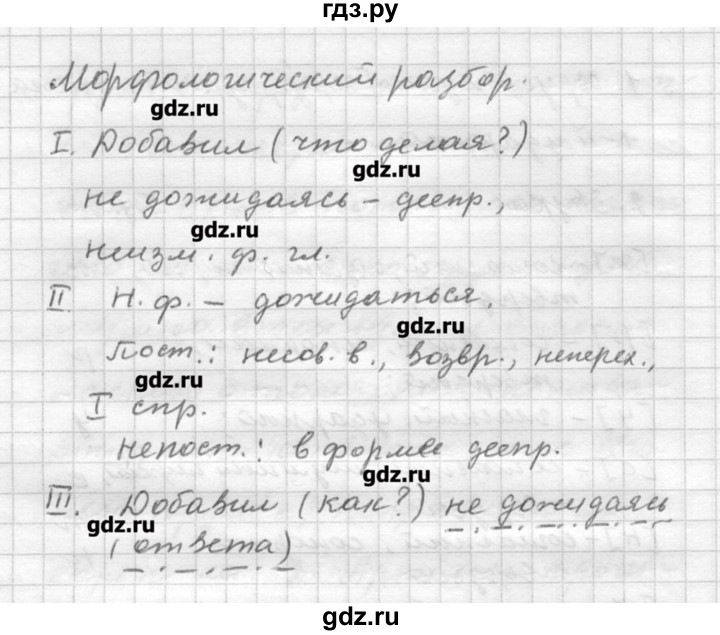 гдз.ру
Морфологический разбор.
gdz.ru
I. Добавил (что делая?)
gdz.ru
не дожидаясь – деепр.,
gdz.ru
неизм. ф. гл.
II Н. ф. – дожидаться.
gdz.ru
Пост.: несов. в., возвр., неперех.,
gdz.ru
I спр.
Непост.: в форме деепр.
gdz.ru
III. Добавил (как?) не дожидаясь
gdz.ru
(ответа)
gdz.ru